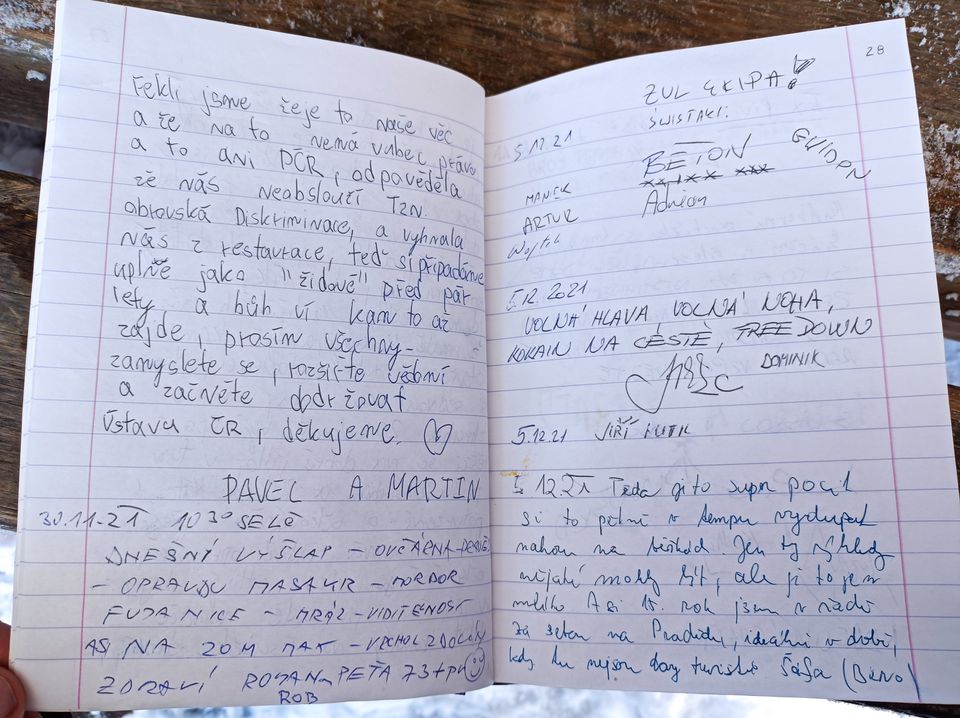 Řekli jsme žeje to naše věc
a že na to nemá vubec právo
a to ani PČR, odpověděla
že nás neobslouží Tzn.
obrovská Diskriminace, a vyhnala
nás z restaurace, teď si připadáme
uplňe jako "židové" před pár
lety a bůh ví kam to až
zajde, prosím všechny
zamyslete se, rozšiřte vědomí
a začněte dodržovat
Ústavu ČR, děkujeme.
PAVEL A MARTIN
30.11.21 10 30 SELČ
DNEŠNÝ VÝŠLAP - OVČÁRNA-
- OPRAVDU MASAKR - MORDOR
FUJANICE - MRÁZ - VIDITELNOST
ASI NA 20M MAX -
ZDRAVÍ ROMAN PEŤA 73+
ROB
28
ZUL EKIPA!
ŚWISTAKI:
5.12.21
BETON
GWIDON
MANEK
ARTUR
Adrian
Wojtek
5.12.2021
VOLNÁ HLAVA VOLNÁ NOHA,
KOKAIN NA CESTĚ, FREEDOWN
DOMINIK
5.12.21 JIŘÍ
5.12.21 Teda je to supr pocit
si to pěkně v tempu vydupat
nahoru na běžkách. Jen ty výhledy
nějaké mohly být, ale je to jen
Asi 15. rok jsem v řadě
na Pradědu, ideální v době,
kdy tu nejsou davy turistů Šáša (Brno)